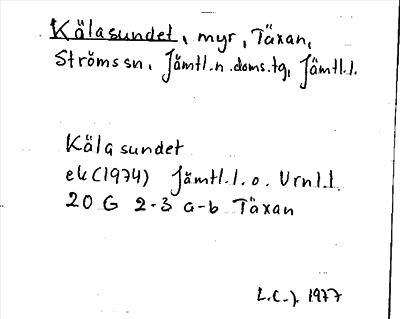 Kälasundet, myr, Täxan,
Ströms sn, Jämtl.n.doms.tg, Jämtl.l.
Kälasundet
ek (1974) Jämtl.l.o. Urnl.l.
20 G 2-3 a-b Täxan
L.C-J. 1977